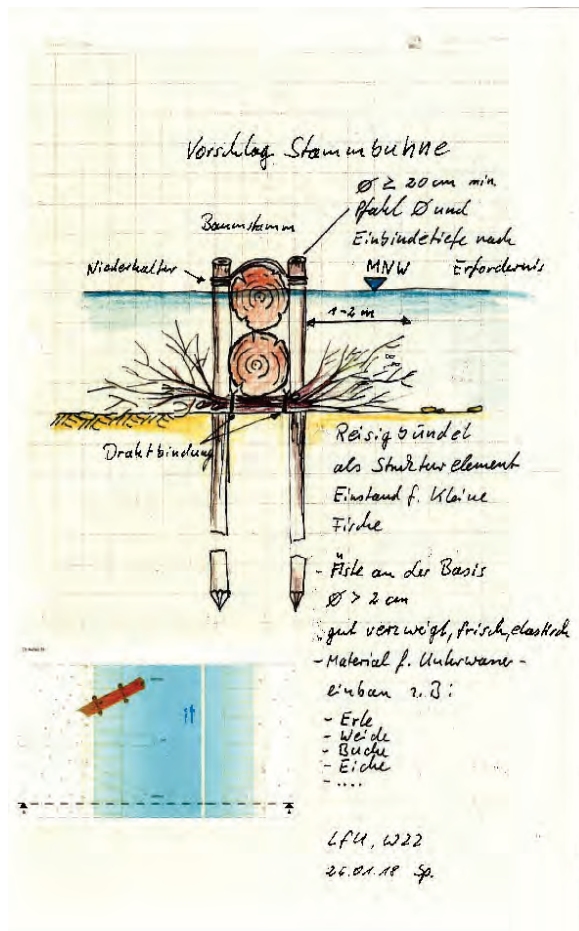 Vorschlag Stammbuhne
Ø ≥ 20 cm min.
Pfahl Ø und
Einbindetiefe nach
Erfordernis
Baumstamm
Niederhalter
MNW
1-2 m
Drahtbindung
Reisigbündel
als Strukturelement
Einstand f. Kleine
Fische
- Äste an der Basis
Ø > 2 cm
gut verzweigt, frisch, elastisch
- Material f. Unterwasser-
einbau z.B:
- Erle
- Weide
- Buche
- Eiche
- ....
LfU, W22